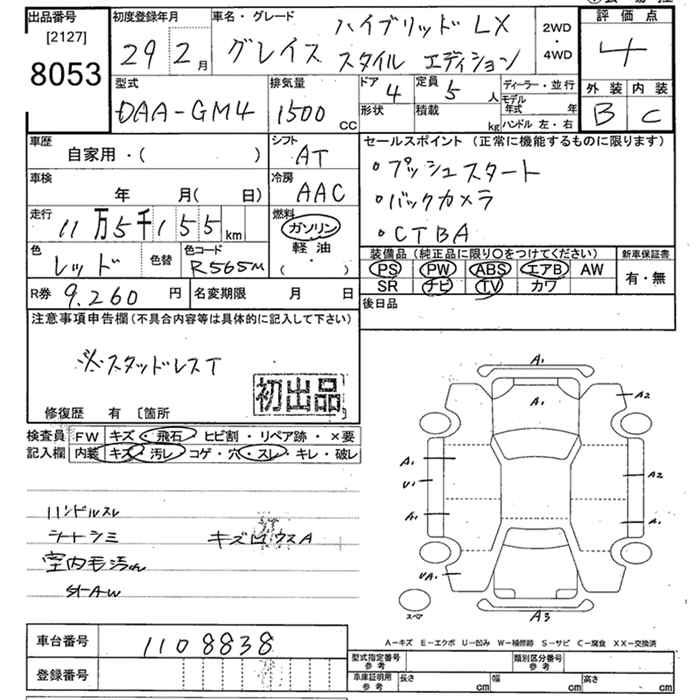 出品番号
[2127]
8053
初度登録年月
29年2月
車名・グレード
ハイブリッド LX
グレイス スタイル エディション
2WD
・
4WD
評価点
4
外装 内装
B C
型式
DAA-GM4
排気量
1500 cc
ドア 4
定員 5 人
形状
積載 kg
ディーラー・並行
モデル年式 年
ハンドル 左・右
車歴
自家用・( )
シフト
AT
車検
年 月( 日)
冷房
AAC
走行
11万5千155 km
燃料
ガソリン
軽油
( ・ )
色
レッド
色替
色コード
R565M
R券 9.260 円
名変期限 月 日
セールスポイント(正常に機能するものに限ります)
・プッシュスタート
・バックカメラ
・CTBA
装備品(純正品に限り〇をつけてください)
PS PW ABS エアB AW
SR ナビ TV カワ
新車保証書
有・無
後日品
注意事項申告欄(不具合内容等は具体的に記入して下さい)
※スタッドレスT
初出品
修復歴 有 〔箇所
検査員記入欄
FW キズ・飛石・ヒビ割・リペア跡・×要
内装 キズ・汚レ・コゲ・穴・スレ・キレ・破レ
ハンドルスレ
シートシミ
キズロウスA
室内毛汚れ
StAW
A1
A1
A2
A1
U1
A2
A1
A1
UA1
A3
スペア
A－キズ E－エクボ U－凹み W－補修跡 S－サビ C－腐食 XX－交換済
車台番号 1108838
登録番号
型式指定番号 参考
類別区分番号 参考
車庫証明用 参考
長さ cm
幅 cm
高さ cm